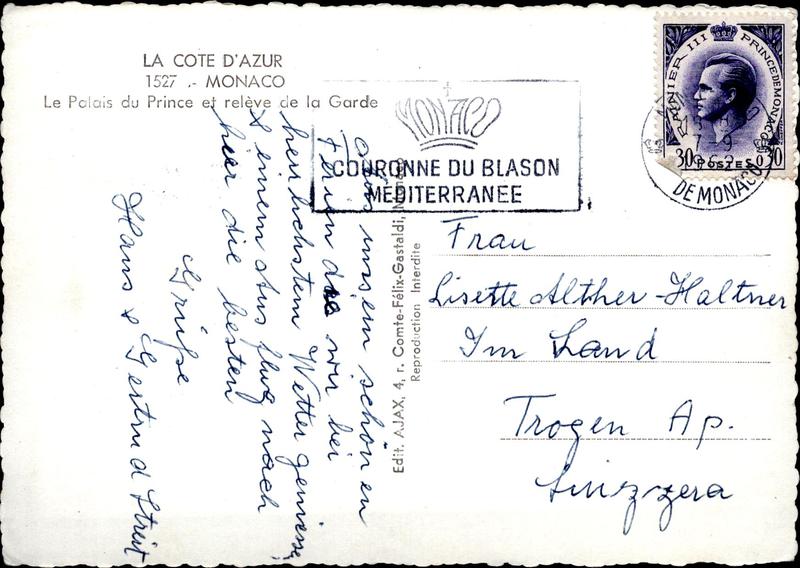 LA COTE D'AZUR
1527 .- MONACO
Le Palais du Prince et relève de la Garde
MONACO
COURONNE DU BLASON
MÉDITERRANEE
RAINIER III PRINCE DE MONACO
30 POSTES 30
7-9
DE MONACO
Edit. AJAX, 4, r. Comte-Félix-Gastaldi, Monaco
Reproduction Interdite
Aus unsern schönen
Ferien die wir bei
herrlichstem Wetter geniessen
& einem Ausflug nach
hier die besten
Grüße
Hans & Gertrud Streit
Frau
Lisette Alther-Haltner
Im Land
Trogen Ap.
Svizzera